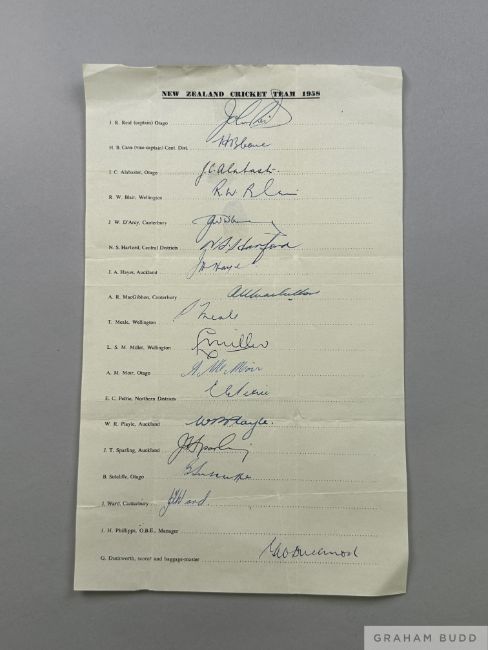 NEW ZEALAND CRICKET TEAM 1958
J. R. Reid (captain) Otago
H. B. Cave (vice-captain) Cent. Dist. H B Cave
J. C. Alabaster, Otago J. C. Alabaster
R. W. Blair, Wellington R W Blair
J. W. D'Arcy, Canterbury
N. S. Harford, Central Districts N S Harford
J. A. Hayes, Auckland J A Hayes
A. R. MacGibbon, Canterbury
T. Meale, Wellington T Meale
L. S. M. Miller, Wellington Miller
A. M. Moir, Otago A. M. Moir
E. C. Petrie, Northern Districts E C Petrie
W. R. Playle, Auckland W R Playle.
J. T. Sparling, Auckland J T Sparling
B. Sutcliffe, Otago
J. Ward, Canterbury J Ward
J. H. Phillipps, O.B.E., Manager
G. Duckworth, scorer and baggage-master
GRAHAM BUDD